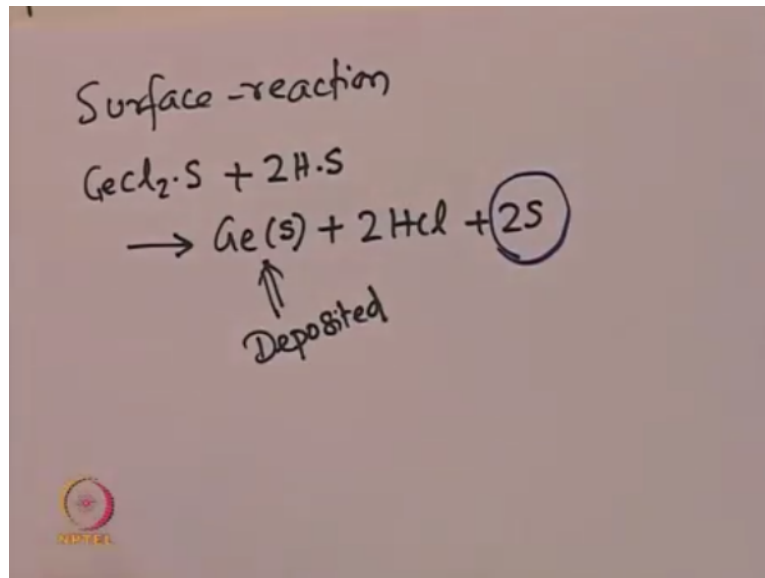 Surface-reaction
GeCl₂·S + 2H·S
→ Ge(s) + 2HCl + 2S
Deposited
NPTEL